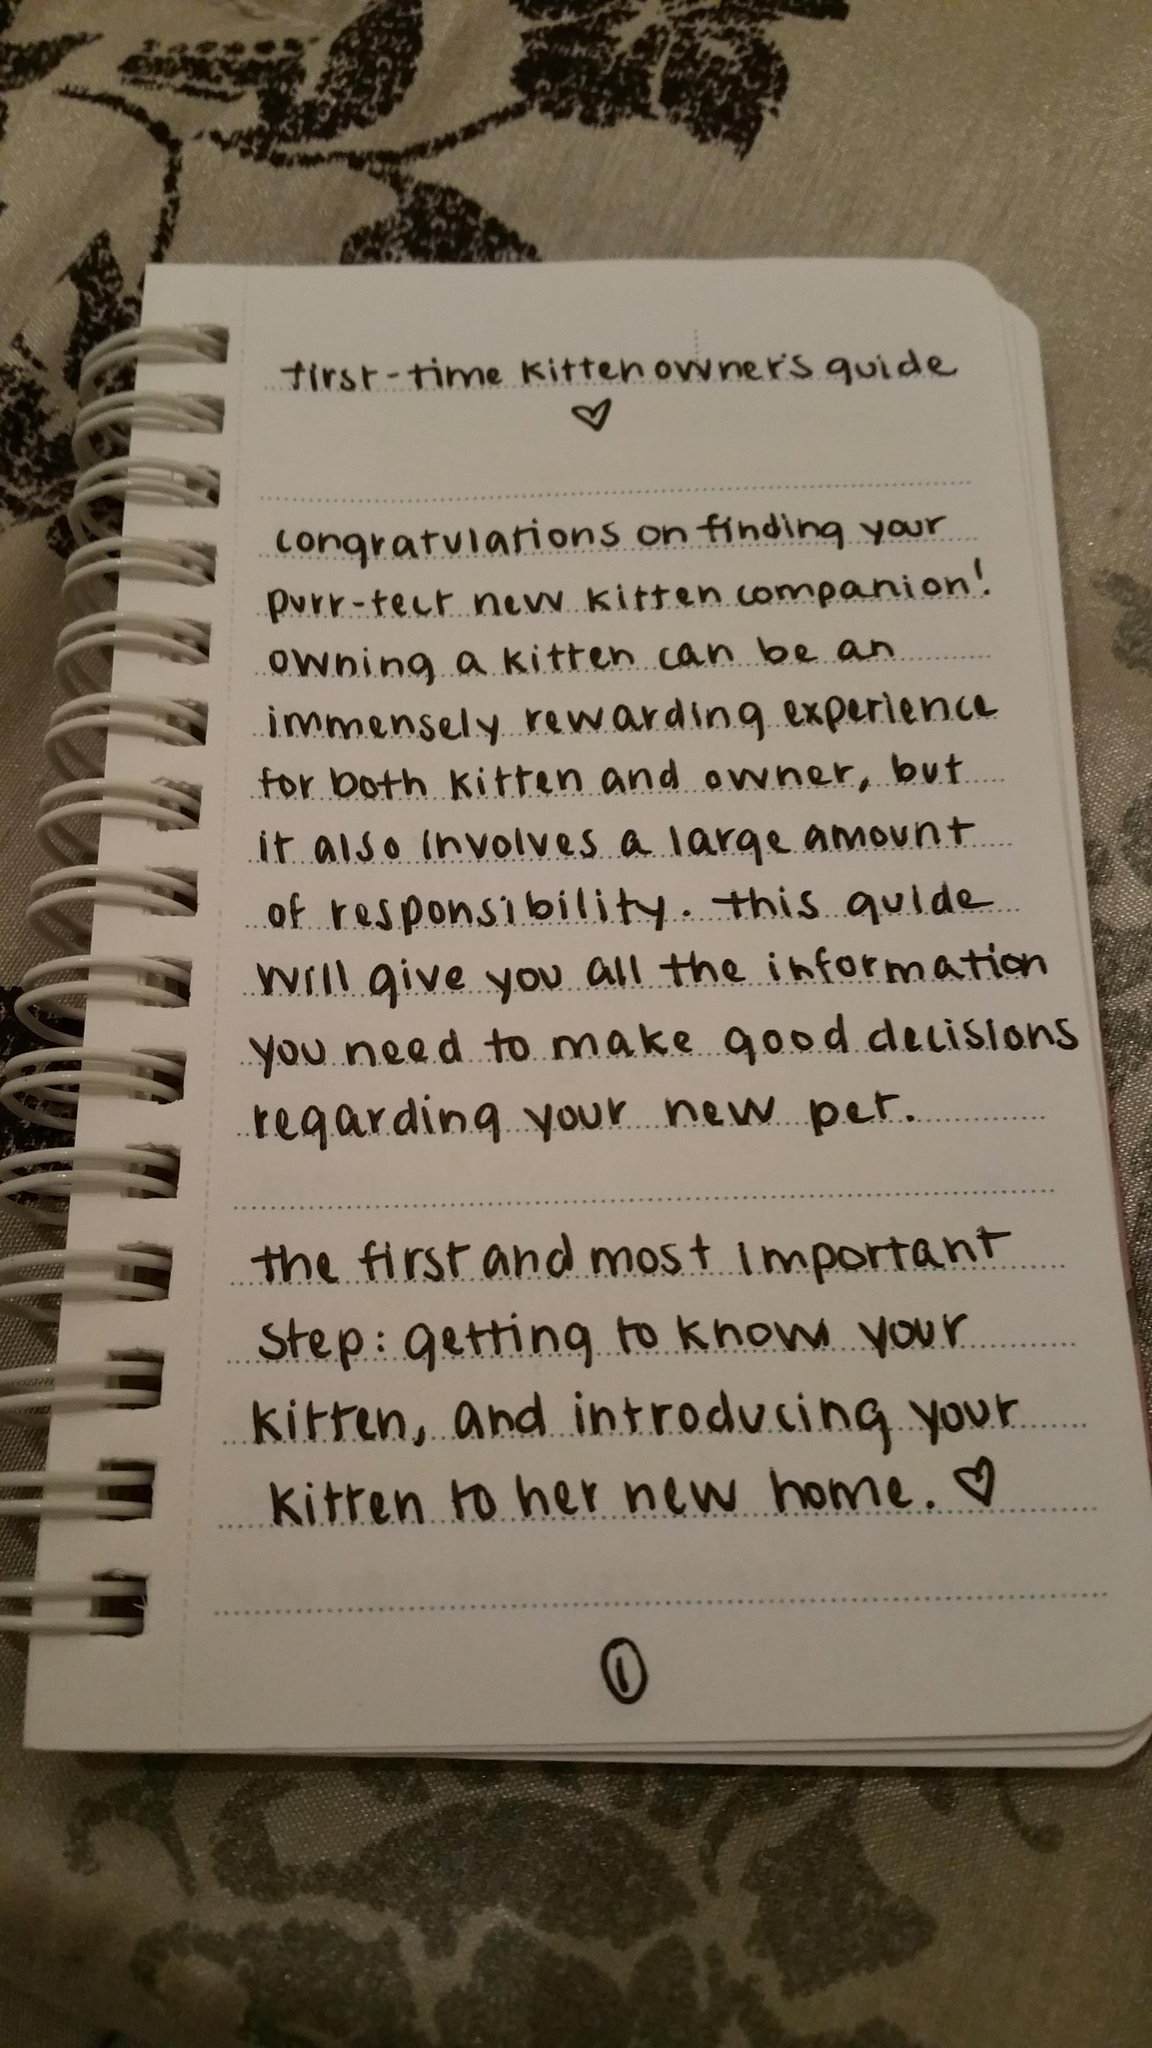 first-time kitten owner's guide
♡
congratulations on finding your
purr-fect new kitten companion!
owning a kitten can be an
immensely rewarding experience
for both kitten and owner, but
it also involves a large amount
of responsibility. this guide
will give you all the information
you need to make good decisions
regarding your new pet.
the first and most important
step: getting to know your
kitten, and introducing your
kitten to her new home. ♡
1